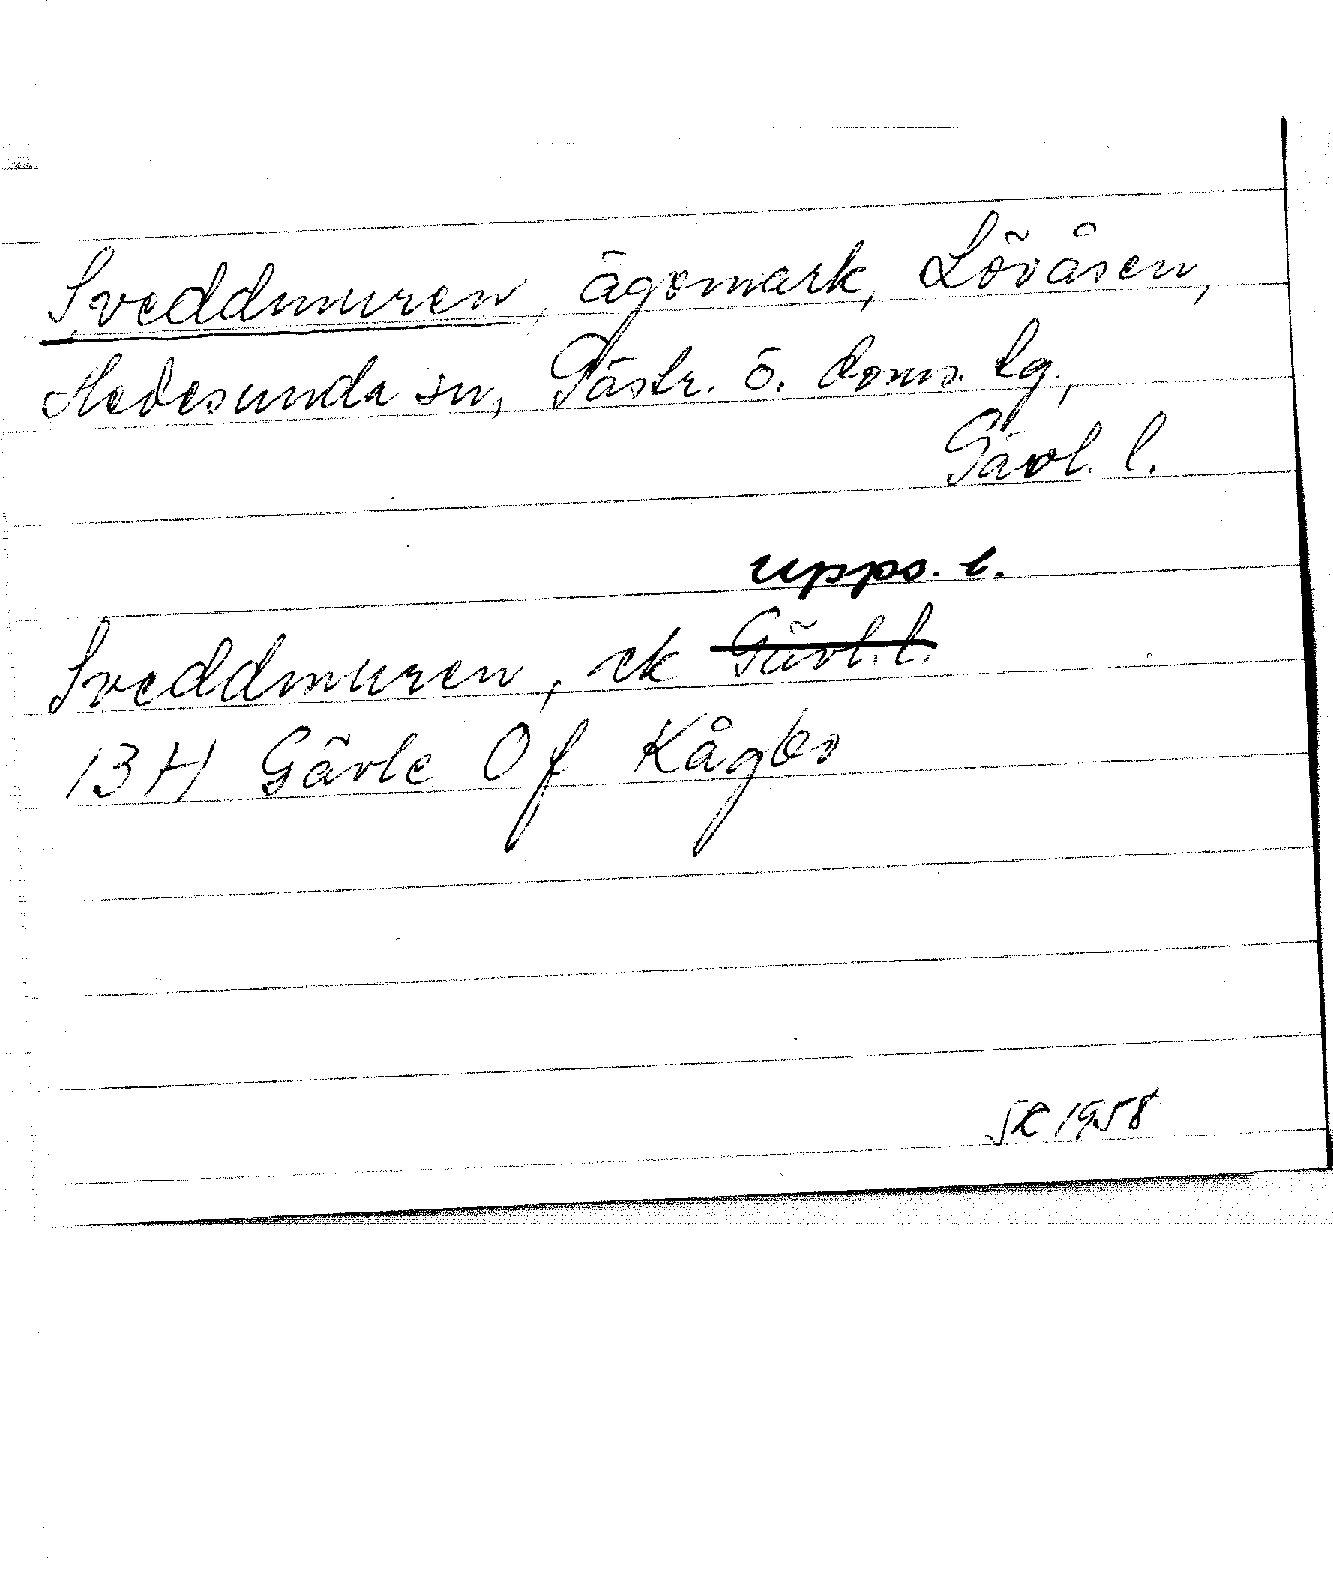 Sveddmuren, ägomark, Lövåsen,
Hedesunda sn, Gästr. ö. doms. tg.,
Gävl. l.
Upps. l.
Sveddmuren, ek Gävl. l.
13 H Gävle 0f Kågbo
1958